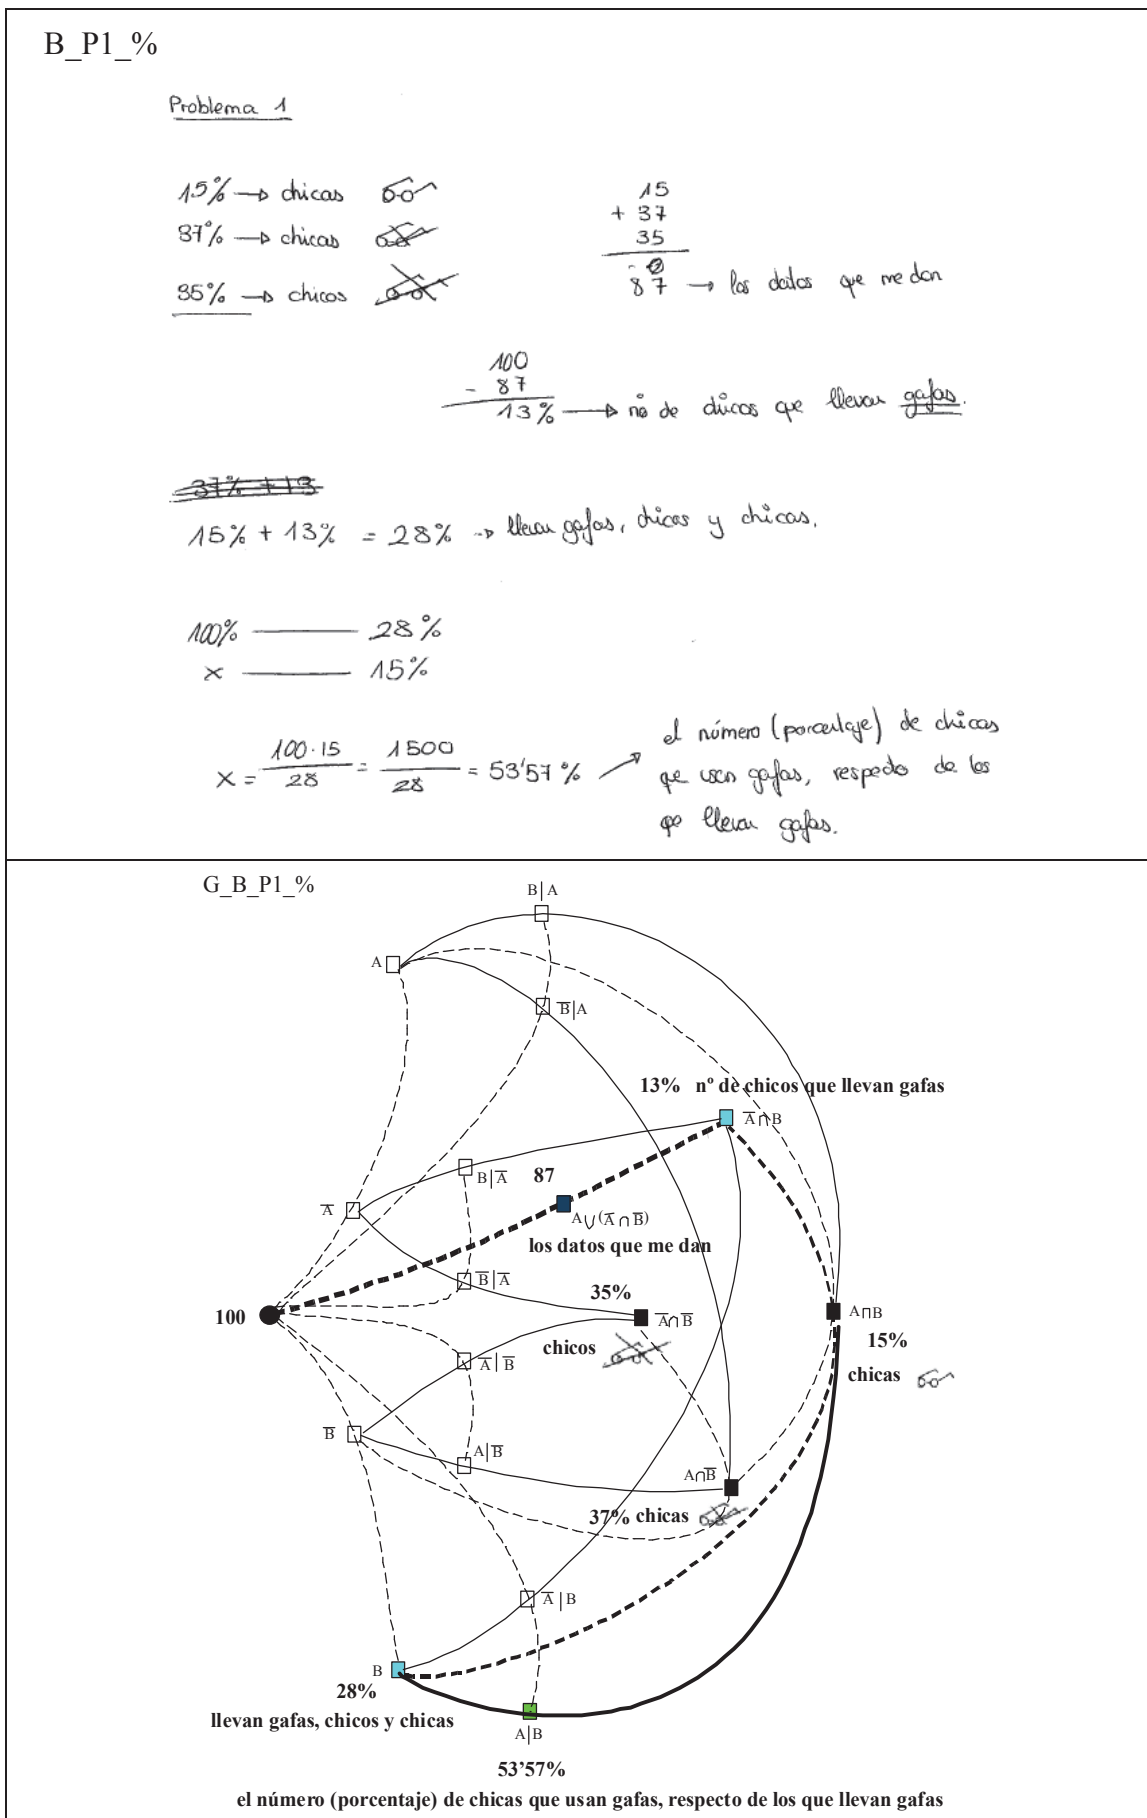 B_P1_%
Problema 1
15% → chicas
37% → chicas
35% → chicos
15
+ 37
35
87 → los datos que me dan
100
- 87
13% → nº de chicos que llevan gafas.
37% + 13
15% + 13% = 28% → llevan gafas, chicos y chicas.
100% —— 28%
x —— 15%
x = 100·15 / 28 = 1500 / 28 = 53'57 %
el número (porcentaje) de chicas
que usan gafas, respecto de los
que llevan gafas.
G_B_P1_%
B|A
A
B̅|A
13% nº de chicos que llevan gafas
A̅∩B
B|A̅
87
A̅
A∪(A̅∩B̅)
los datos que me dan
B̅|A̅
35%
100
A̅∩B̅
A∩B
chicos
15%
A̅|B̅
chicas
B̅
A|B̅
A∩B̅
37% chicas
A̅|B
B
28%
llevan gafas, chicos y chicas
A|B
53'57%
el número (porcentaje) de chicas que usan gafas, respecto de los que llevan gafas